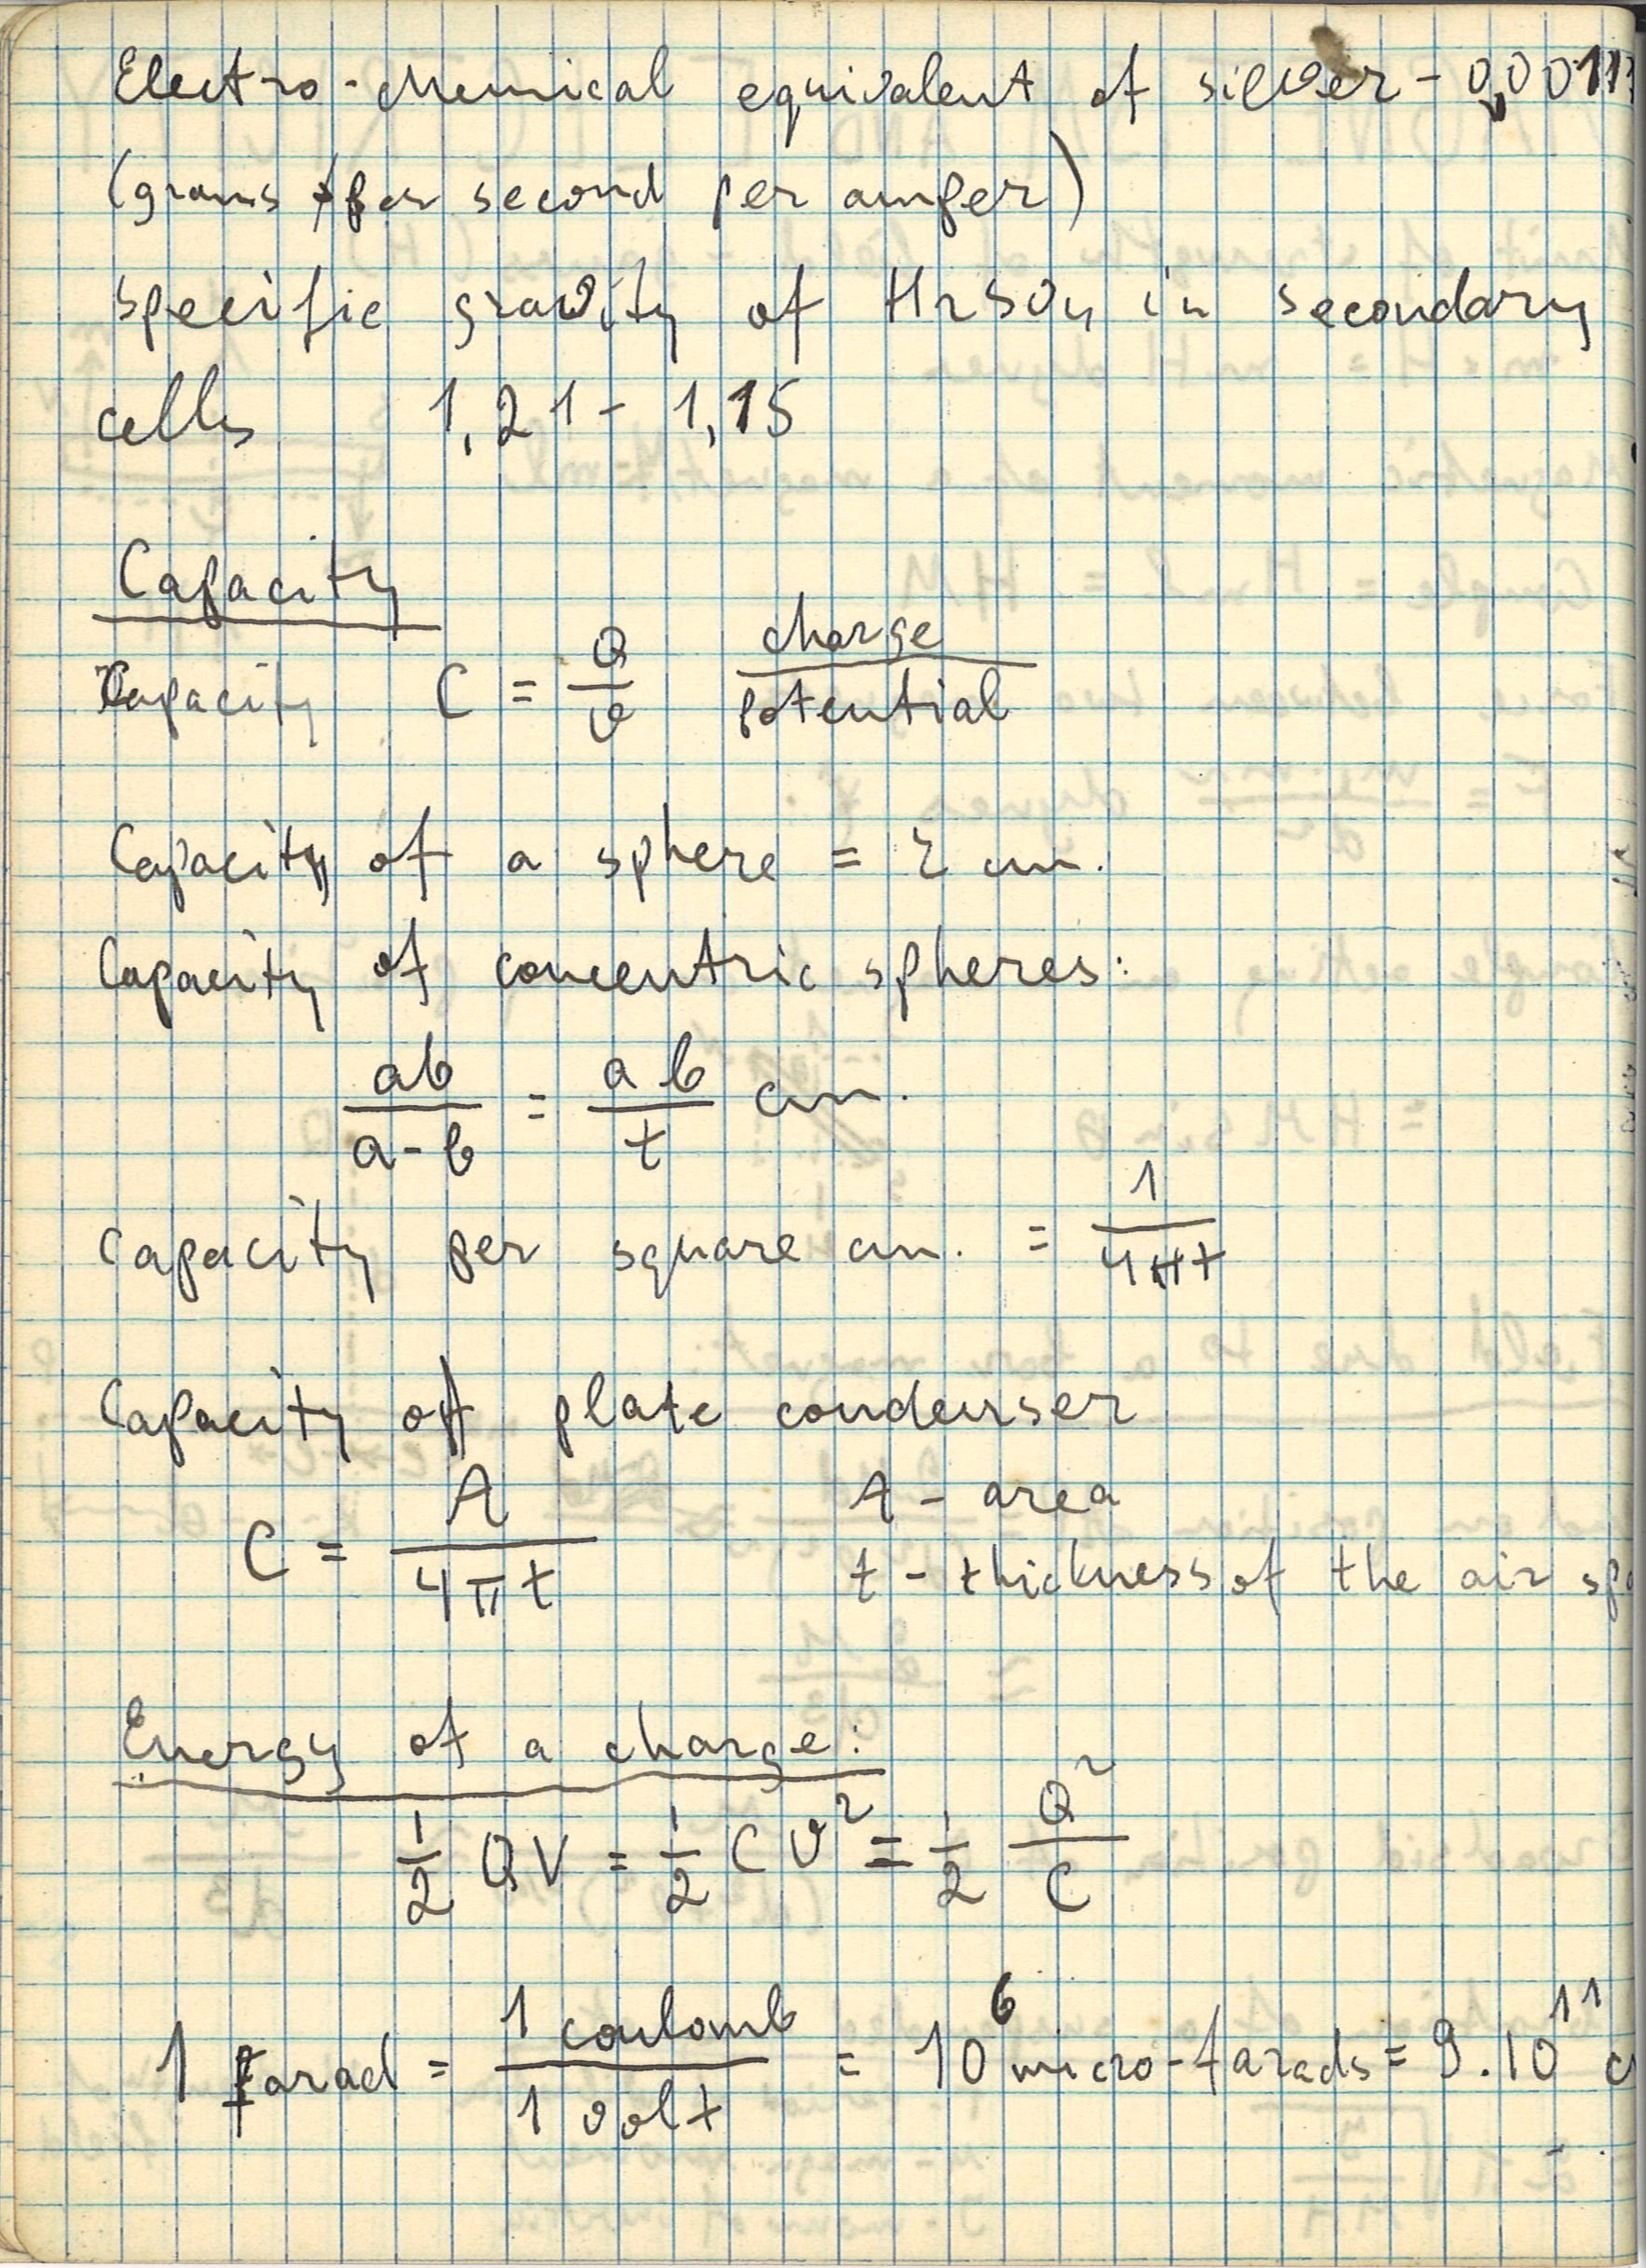 Electro-chemical equivalent of silver - 0,00111
(grams per second per amper)
specific gravity of H2SO4 in secondary
cells 1,21 - 1,15
Capacity
Capacity C = Q/v charge/potential
Capacity of a sphere = r cm.
Capacity of concentric spheres:
ab/a-b = ab/t cm.
Capacity per square cm. = 1/4πt
Capacity of plate condenser
C = A/4πt A - area
t - thickness of the air
Energy of a charge:
1/2 QV = 1/2 Cv² = 1/2 Q²/C
1 Farad = 1 coulomb/1 volt = 10⁶ micro-farads = 9.10¹¹